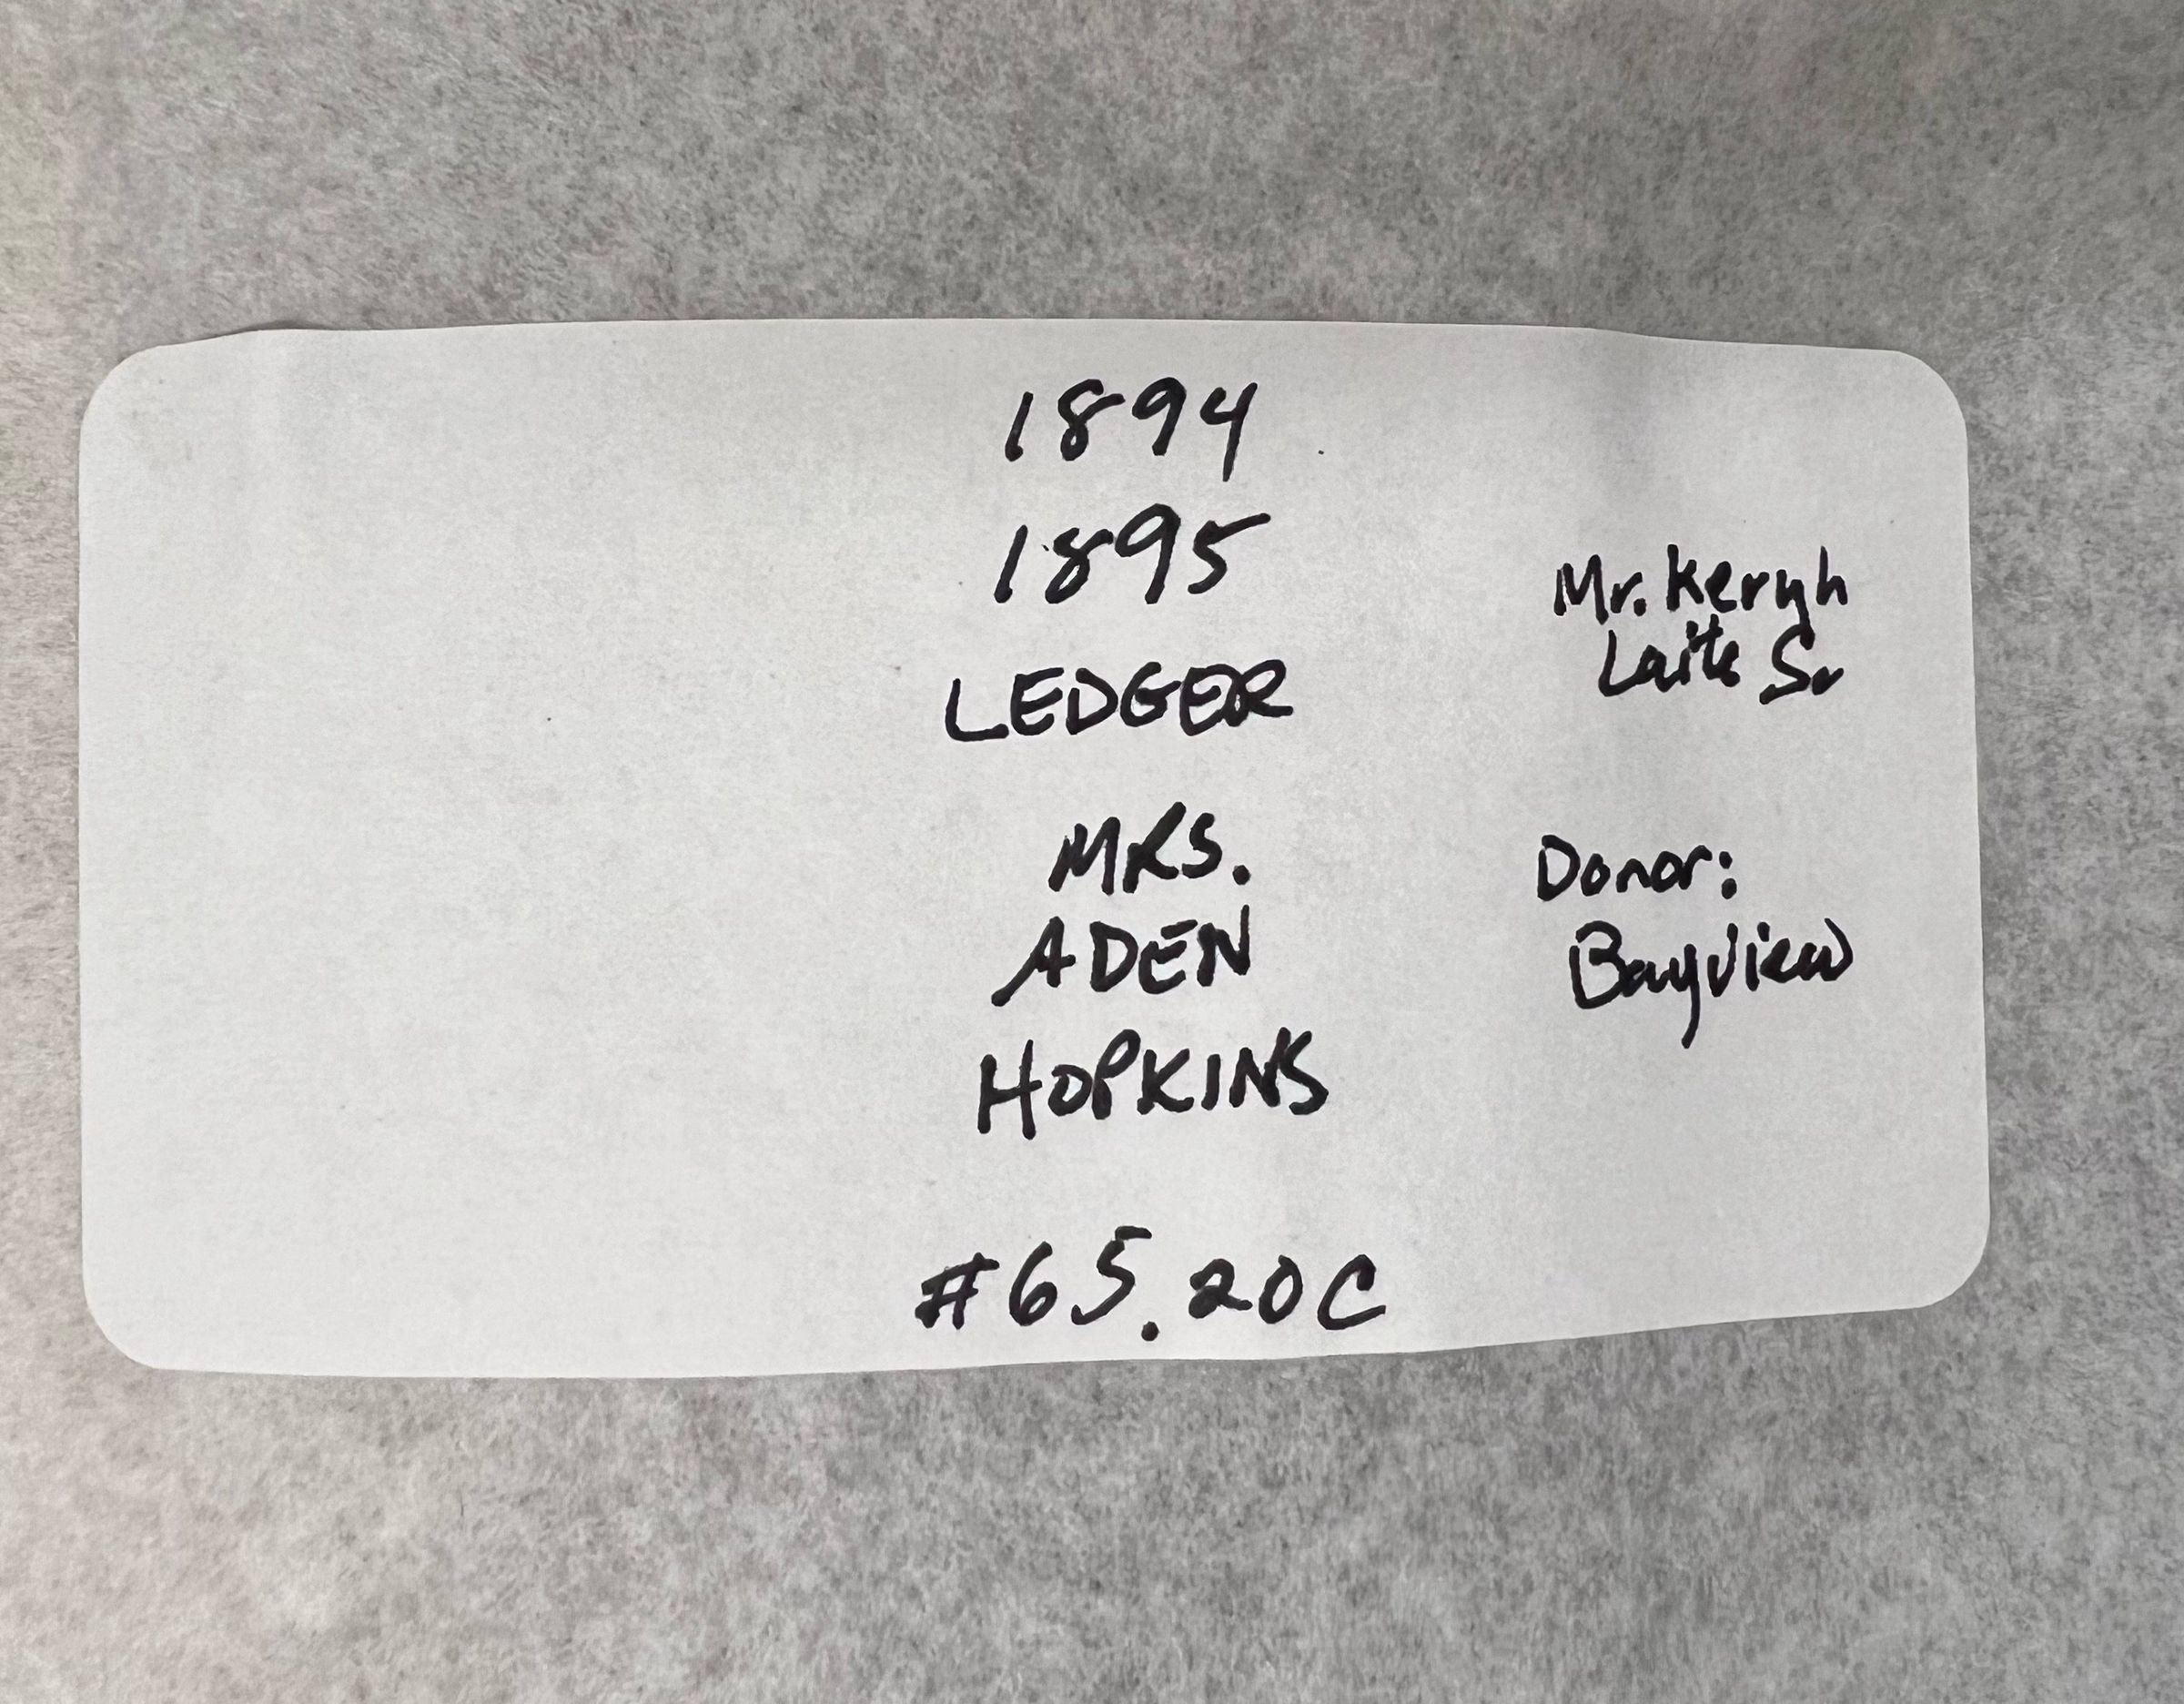 1894
1895
LEDGER
MRS.
ADEN
HOPKINS
#65.20C
Mr.
Laite Sr
Donor:
Bayview